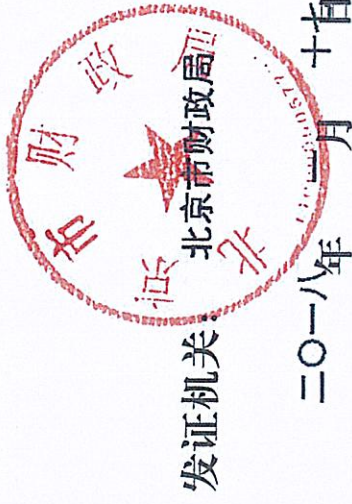 发证机关: 北京市财政局
二〇一八年 月 十 日
北京市财政局